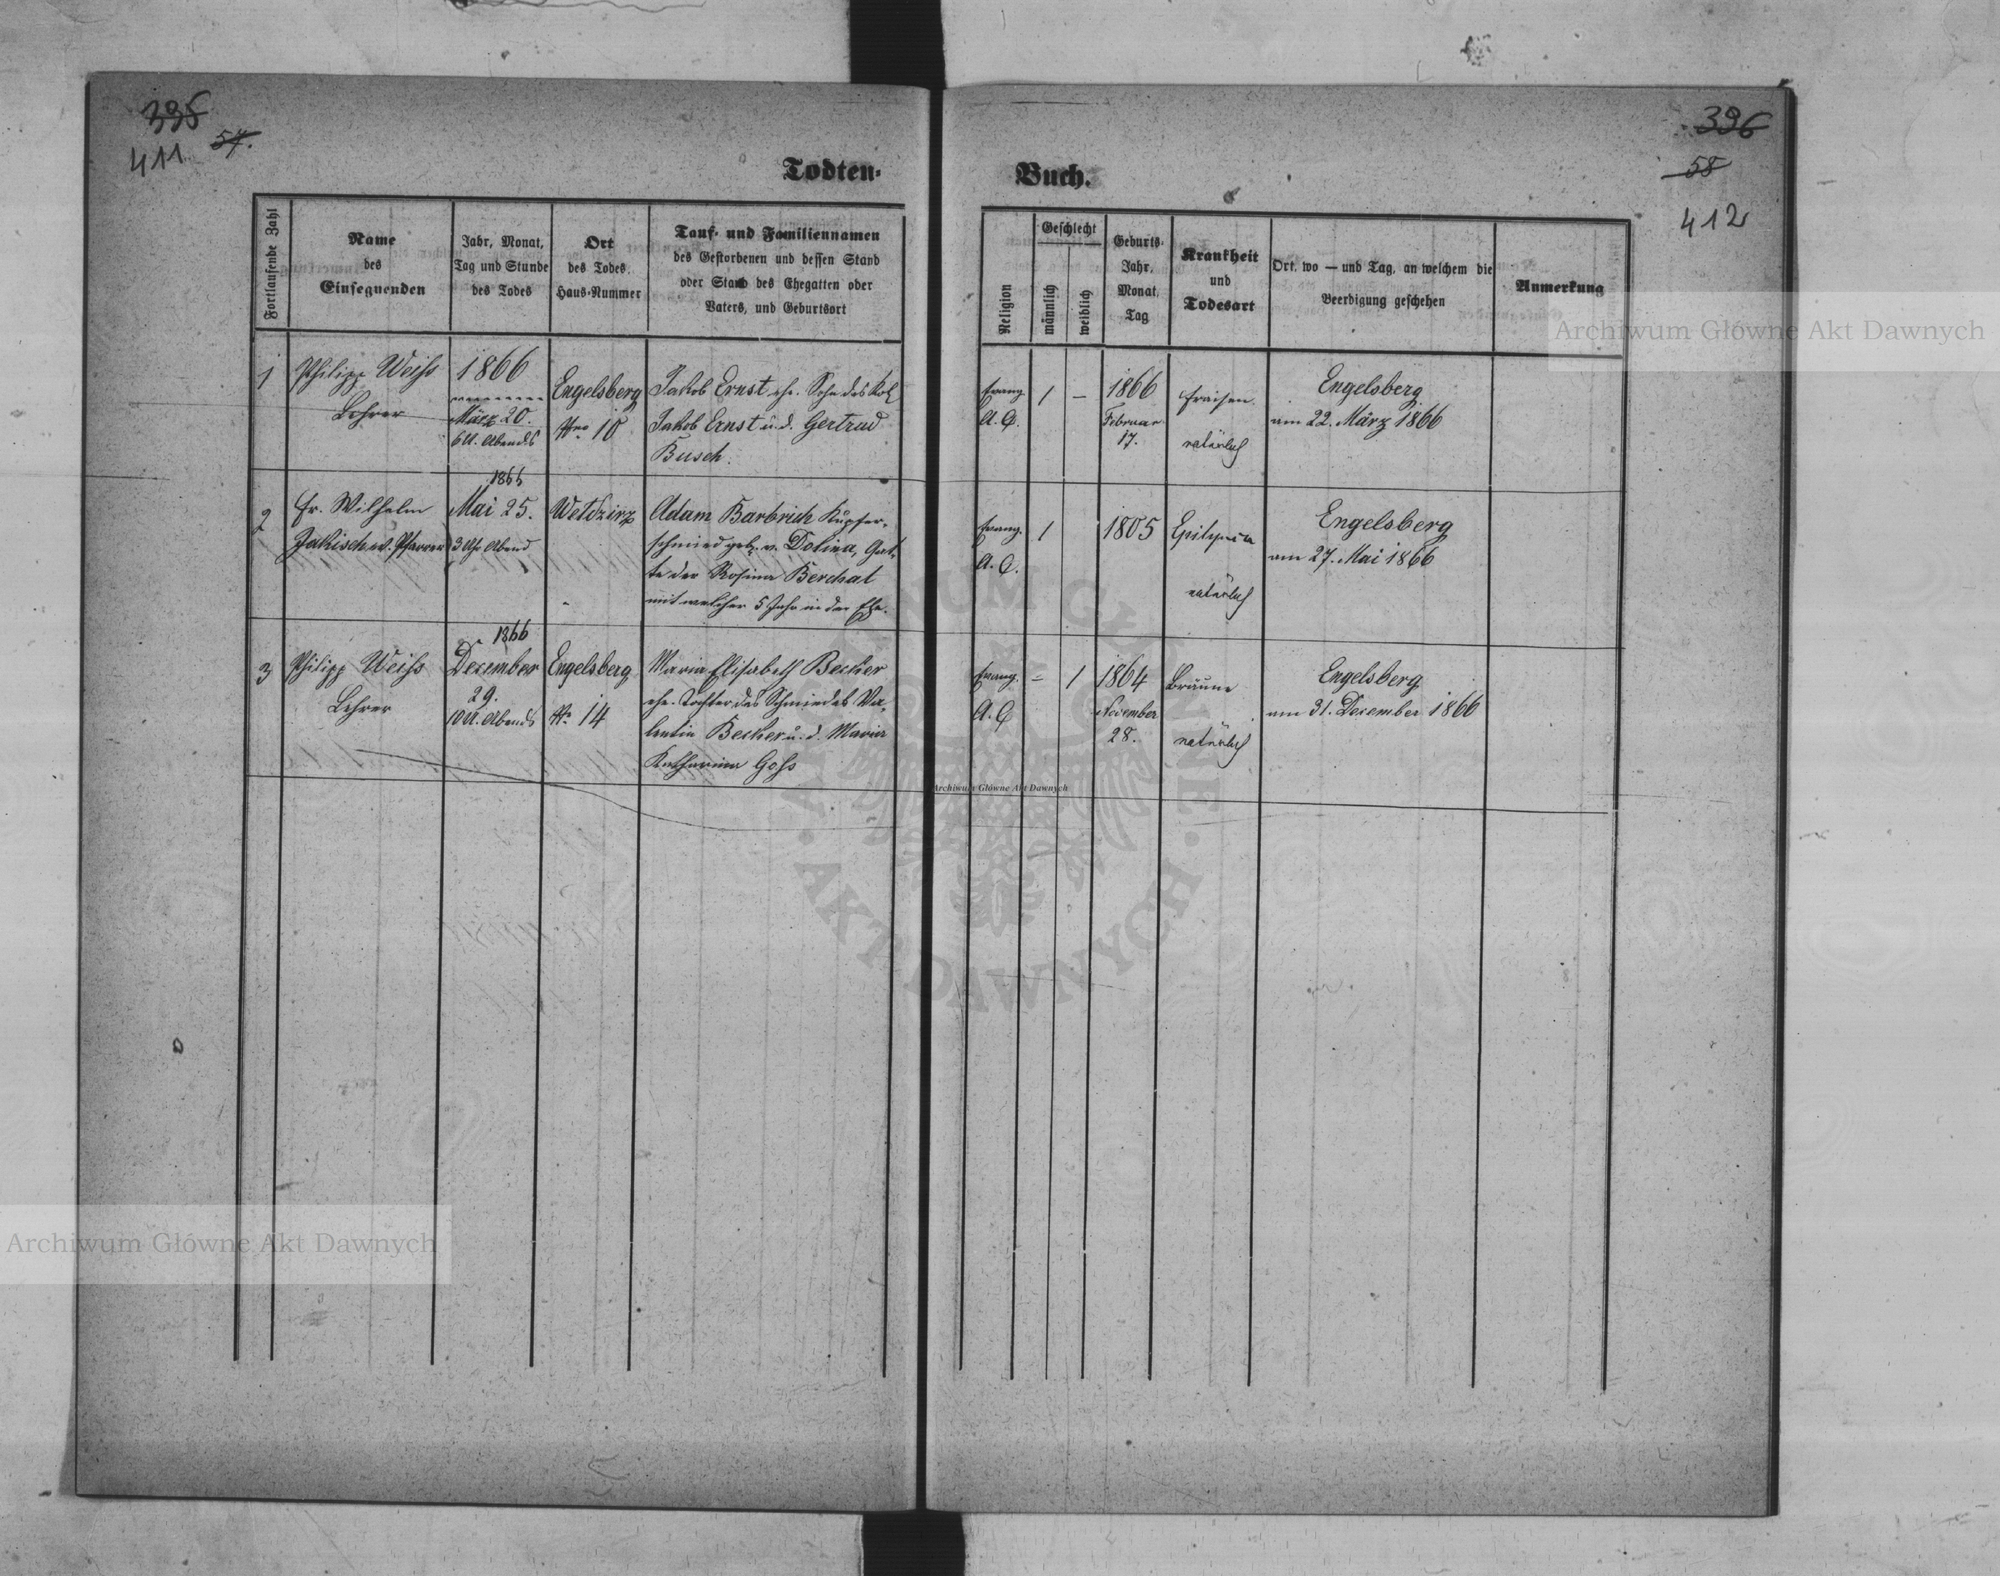 395
411 57.
Todten-
Fortlaufende Zahl
Name
des
Einsegnenden
Jahr, Monat,
Tag und Stunde
des Todes
Ort
des Todes,
Haus-Nummer
Tauf- und Familiennamen
des Gestorbenen und dessen Stand
oder Stand des Ehegatten oder
Vaters, und Geburtsort
1
Philipp Weiss
Lehrer
1866
März 20.
6 U. Abends
Engelsberg
Nro 10
Jakob Ernst ehe. Sohn des Kol
Jakob Ernst u. d. Gertrud
Busch.
2
Fr. Wilhelm
Jakisch ev. Pfarrer
1866
Mai 25.
3 Uhr Abend
Weldzirz
Adam Barbrich Kupfer-
schmied geb. v. Dolina, Gat-
te der Rosina Berchat
mit welcher 5 Jahr in der Ehe.
3
Philipp Weiss
Lehrer
1866
December
29.
10 U. Abends
Engelsberg
No 14
Maria Elisabeth Becker
ehe. Tochter des Schmiedes Va-
lentin Becker u. d. Maria
Katharina Goss
396
58
412
Buch.
Religion
Geschlecht
männlich
weiblich
Geburts-
Jahr,
Monat,
Tag
Krankheit
und
Todesart
Ort, wo — und Tag, an welchem die
Beerdigung geschehen
Anmerkung
Evang.
A. C.
1
—
1866
Februar
17.
Fraisen.
natürlich
Engelsberg
am 22. März 1866
Evang.
A. C.
1
1805
natürlich
Engelsberg
am 27. Mai 1866
Evang.
A. C.
1
1864
November
28.
Bräune
natürlich
Engelsberg
am 31. December 1866
Archiwum Główne Akt Dawnych
Archiwum Główne Akt Dawnych
Archiwum Główne Akt Dawnych
AKT DAWNYCH